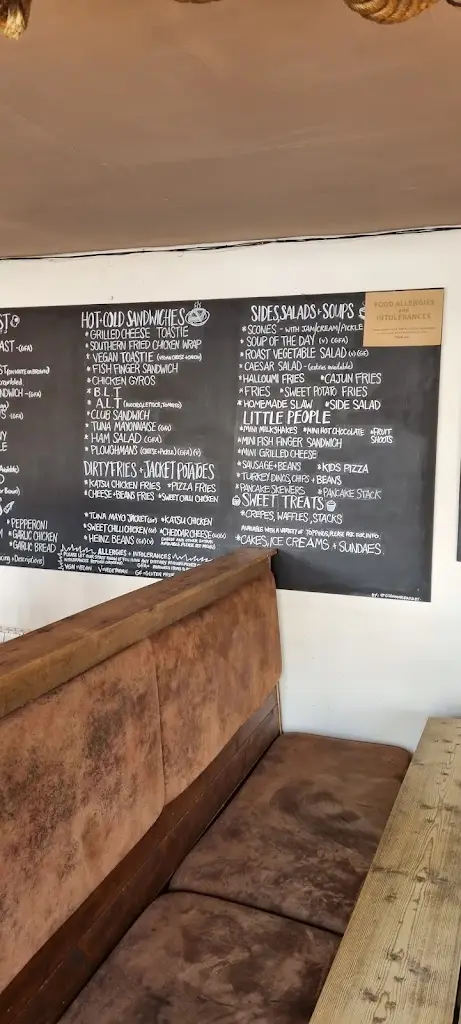 ST
AST -(GFA)
PEPPERONI
GARLIC CHICKEN
GARLIC BREAD
HOT+COLD SANDWICHES
* GRILLED CHEESE TOASTIE
* SOUTHERN FRIED CHICKEN WRAP
* VEGAN TOASTIE
* FISH FINGER SANDWICH
* CHICKEN GYROS
* B.L.T
* A.L.T
* CLUB SANDWICH
* TUNA MAYONNAISE (GFA)
* HAM SALAD (GFA)
* PLOUGHMANS
DIRTY FRIES + JACKET POTATOES
* KATSU CHICKEN FRIES * PIZZA FRIES
* CHEESE + BEAN FRIES * SWEET CHILLI CHICKEN
* TUNA MAYO JACKET * KATSU CHICKEN
* SWEET CHILLI CHICKEN * CHEDDAR CHEESE
* HEINZ BEANS
ALLERGIES + INTOLERANCES
SIDES, SALADS + SOUPS
* SCONES - WITH JAM/CREAM/PICKLE
* SOUP OF THE DAY (V) (GFA)
* ROAST VEGETABLE SALAD
* CAESAR SALAD -
* HALLOUMI FRIES * CAJUN FRIES
* FRIES * SWEET POTATO FRIES
* HOMEMADE SLAW * SIDE SALAD
LITTLE PEOPLE
* MINI MILKSHAKES * MINI HOT CHOCOLATE * FRUIT SHOOTS
* MINI FISH FINGER SANDWICH
* MINI GRILLED CHEESE
* SAUSAGE + BEANS * KIDS PIZZA
* TURKEY DINOS, CHIPS + BEANS
* PANCAKE SKEWERS * PANCAKE STACK
SWEET TREATS
* CREPES, WAFFLES, STACKS
AVAILABLE WITH A VARIETY OF TOPPINGS, PLEASE ASK FOR INFO
* CAKES, ICE CREAMS + SUNDAES
FOOD ALLERGIES
and
INTOLERANCES